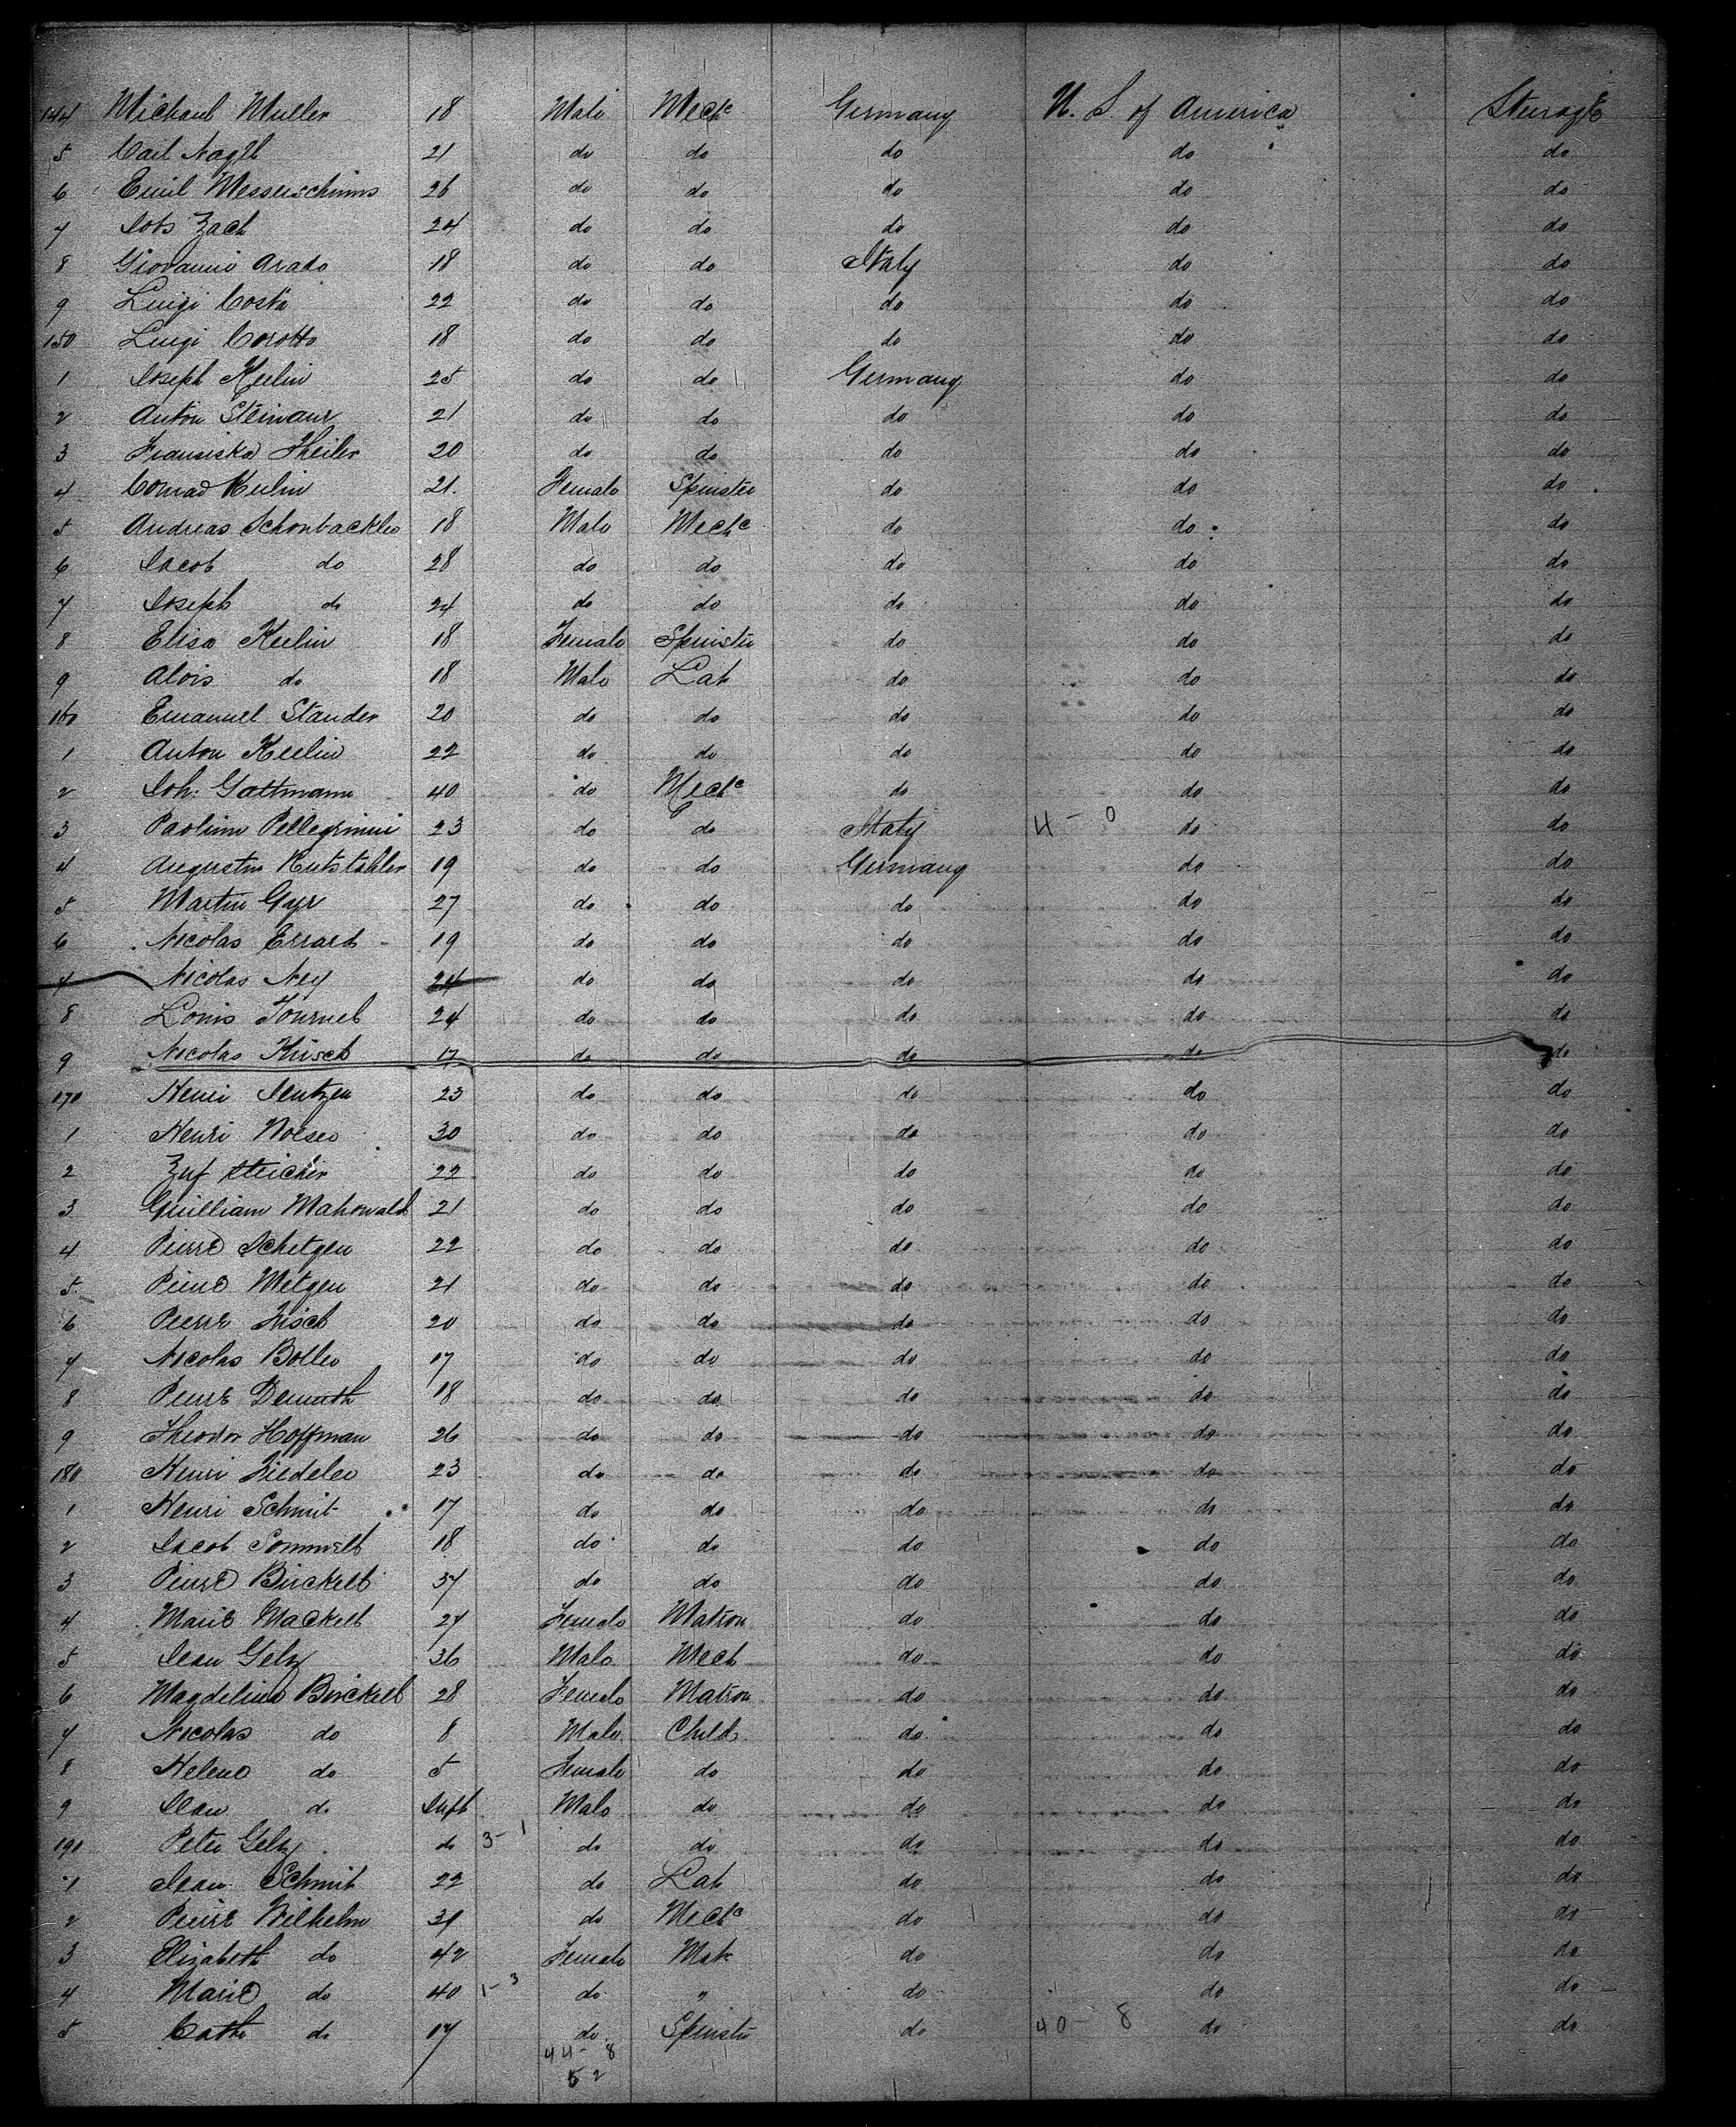 144 Michael Muller 18 Male Mech^c Germany U. S. of America Steerage
5 Carl Nagel 21 do do do do do
6 Emil Messerschmms 26 do do do do do
7 Zach 24 do do do do do
8 Giovanni Arado 18 do do Italy do do
9 Luigi Costa 22 do do do do do
150 Luigi Corotto 18 do do do do do
1 Joseph Keelin 25 do do Germany do do
2 Anton Steinaur 21 do do do do do
3 Fransiska Theiler 20 do do do do do
4 Conrad Keelin 21. Female Spinster do do do
5 Andreas Schonbackler 18 Male Mech^c do do do
6 Jacob do 28 do do do do do
7 Joseph do 24 do do do do do
8 Elisa Keelin 18 Female Spinster do do do
9 Alois do 18 Male Lab do do do
160 Emanuel Stander 20 do do do do do
1 Anton Keelin 22 do do do do do
2 Joh: Gattmann 40 do Mech^c do do do
3 Paolino Pellegrinini 23 do do Italy 4 - 0 do do
4 Augustin Kutstahler 19 do do Germany do do
5 Martin Gyr 27 do do do do do
6 Nicolas Errard 19 do do do do do
7 Nicolas Ney 24 do do do do do
8 Louis Tournel 24 do do do do do
9 Nicolas Krisch 17 do do do do do
170 Henri Jentzen 23 do do do do do
1 Henri 30 do do do do do
2 22 do do do do do
3 Guilliam Mahowald 21 do do do do do
4 Pierre Schetgen 22 do do do do do
5 Pierre Metgen 21 do do do do do
6 Pierre Frisch 20 do do do do do
7 Nicolas Boller 17 do do do do do
8 Pierre Demuth 18 do do do do do
9 Theodor Hoffman 26 do do do do do
180 Henri Fiedeler 23 do do do do do
1 Henri Schmit 17 do do do do do
2 Jacob Sommelt 18 do do do do do
3 Pierre Birckell 37 do do do do do
4 Marie Mackell 27 Female Matron do do do
5 Jean Gelz 36 Male Mech do do do
6 Magdelina Birckell 28 Female Matron do do do
7 Nicolas do 8 Male Child do do do
8 Helene do 5 Female do do do do
9 Jean do Inft Male do do do do
190 Peter Gelz do 3 - 1 do do do do do
1 Jean Schmit 22 do Lab do do do
2 Pierre Wilhelm 39 do Mech^c do do do
3 Elizabeth do 42 Female Mat do do do
4 Marie do 40 1 - 3 do " do do do
5 Cath do 17 do Spinster do 40 - 8 do do
44 - 8
52